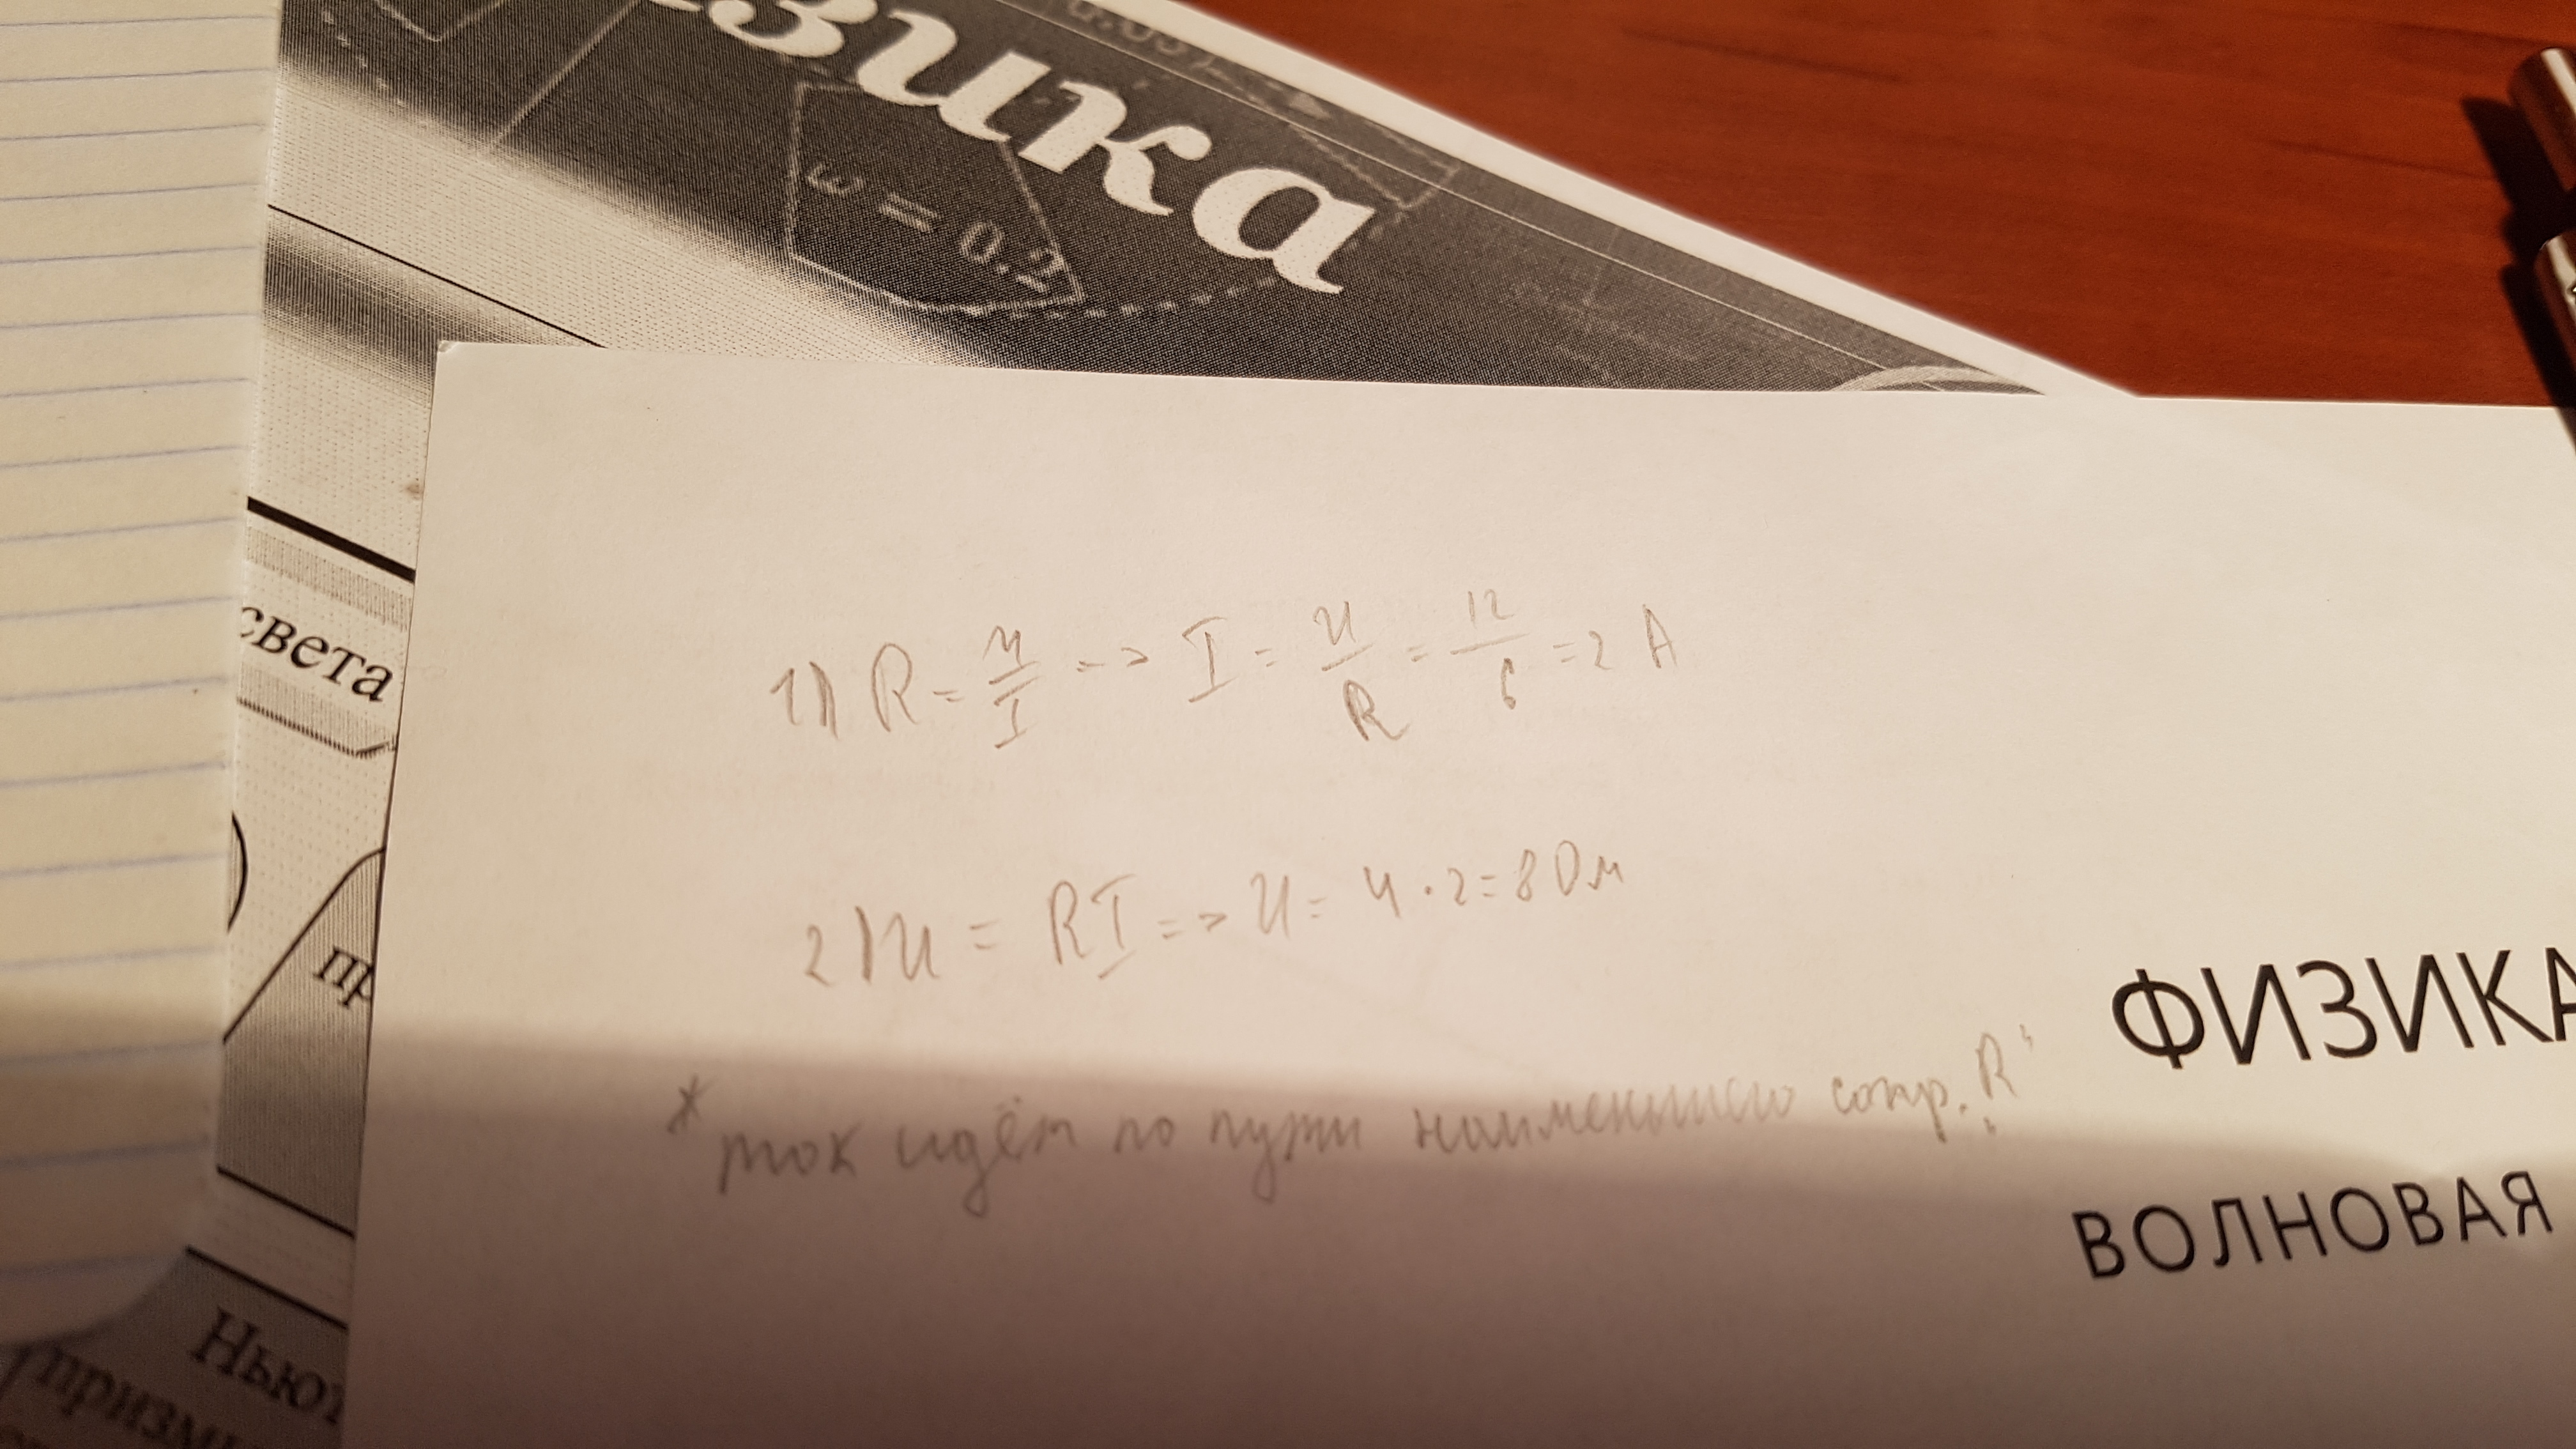 зика
0.05
ω = 0.2
света
пр
Ньют
призмы
1) R = U/I => I = U/R = 12/6 = 2 А
2) U = RI => U = 4 · 2 = 8 Ом
* ток идёт по пути наименьшего сопр. R
ФИЗИКА
ВОЛНОВАЯ